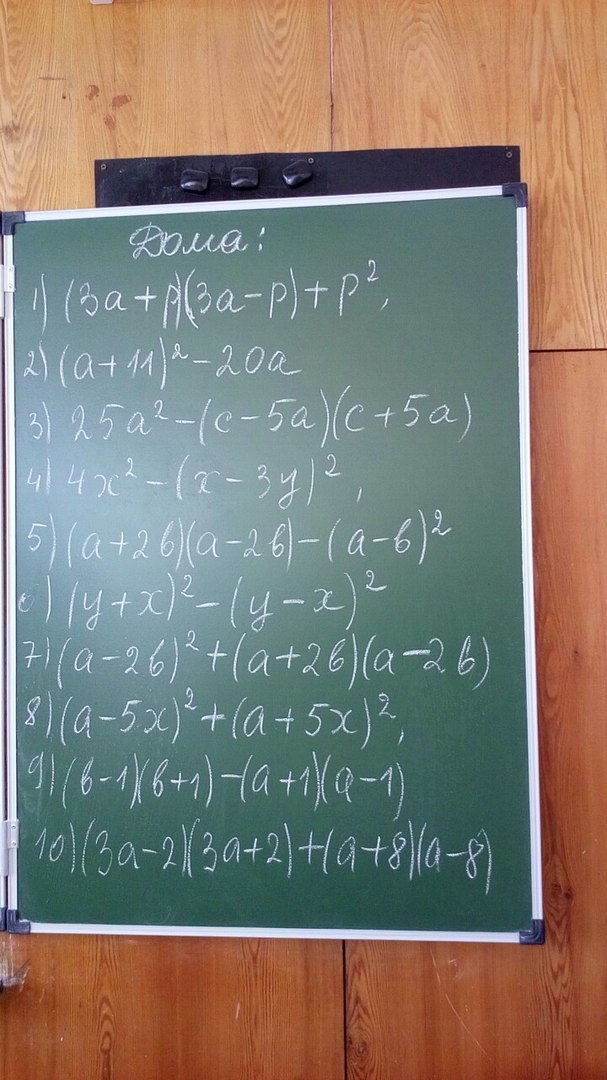 Дома:
1) (3a+p)(3a-p)+p²,
2) (a+11)²-20a
3) 25a²-(c-5a)(c+5a)
4) 4x²-(x-3y)²,
5) (a+2b)(a-2b)-(a-b)²
6) (y+x)²-(y-x)²
7) (a-2b)²+(a+2b)(a-2b)
8) (a-5x)²+(a+5x)²,
9) (b-1)(b+1)-(a+1)(a-1)
10) (3a-2)(3a+2)+(a+8)(a-8)